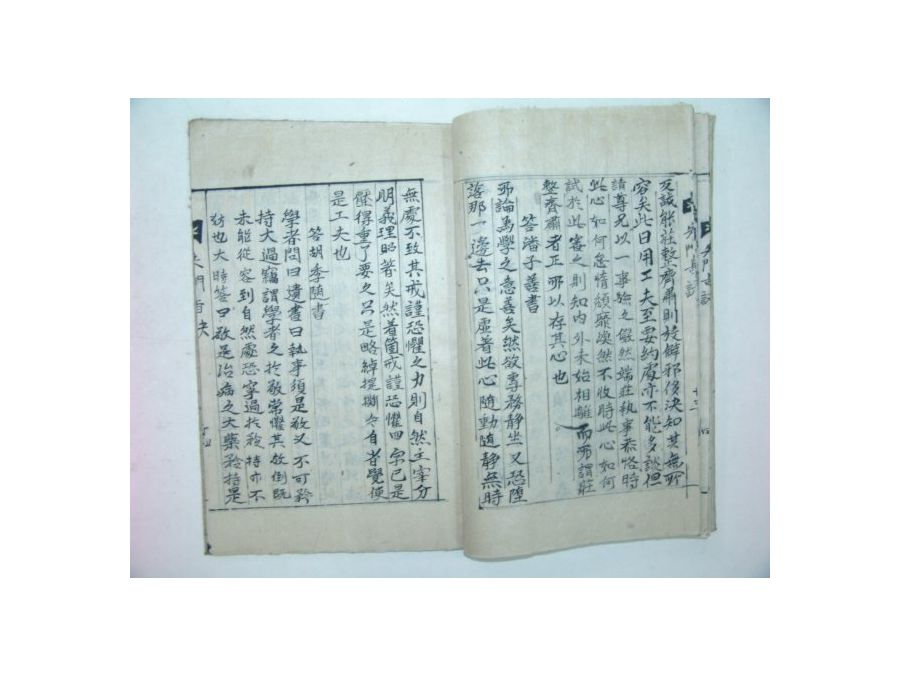 及誠能莊整齊肅則放僻邪侈決知其無所
容矣此日用工夫至要約處亦不能多談但
請尊兄以一事驗之儼然端莊執事恭恪時
此心如何怠惰頹靡渙然不收時此心如何
試於此審之則知內外未始相離而所謂莊
整齊肅者正所以存其心也
答潘子善書
所論為學之意善矣然欲專務靜坐又恐墮
落那一邊去只是虛著此心隨動隨靜無時
無處不致其戒謹恐懼之力則自然主宰分
明義理昭著矣然著箇戒謹恐懼四字已是
壓得重了要之只是略綽提撕令自省覺便
是工夫也
答胡季隨書
學者問曰遺書曰執事須是敬又不可矜
持大過竊謂學者之於敬常懼其放倒既
未能從容到自然處恐寧過於矜持亦不
妨也大時答曰敬是治病之大藥矜持是